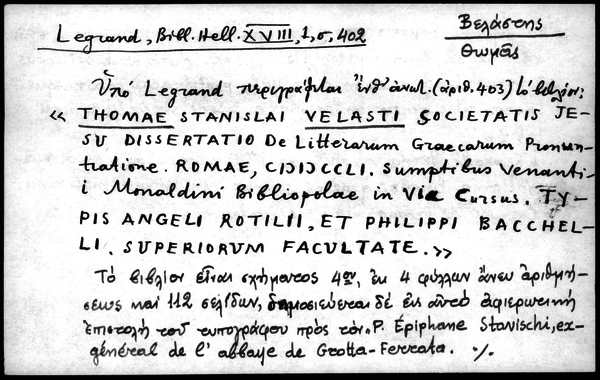 Legrand, Bibl. Hell. XVIII, 1, σ, 402
Βελάστης
Θωμᾶς
Ὑπό Legrand περιγράφεται ἔνθ' ἀνωτ. (ἀριθ. 403) τό βιβλίον:
« THOMAE STANISLAI VELASTI SOCIETATIS JE-
SU DISSERTATIO De Litterarum Graecarum Pronun-
tiatione. ROMAE, CIƆIƆCCLI. Sumptibus Venanti-
i Monaldini Bibliopolae in Via Cursus. TY-
PIS ANGELI ROTILII, ET PHILIPPI BACCHEL-
LI. SUPERIORVM FACULTATE. »
Τό βιβλίον εἶναι σχήματος 4ου, ἐκ 4 φύλλων ἄνευ ἀριθμή-
σεως καί 112 σελίδων, δημοσιεύεται δέ εἰς αὐτό ἀφιερωτική
ἐπιστολή τοῦ τυπογράφου πρός τόν P. Épiphane Stavischi, ex-
général de l'abbaye de Grotta-Ferrata. ·/.